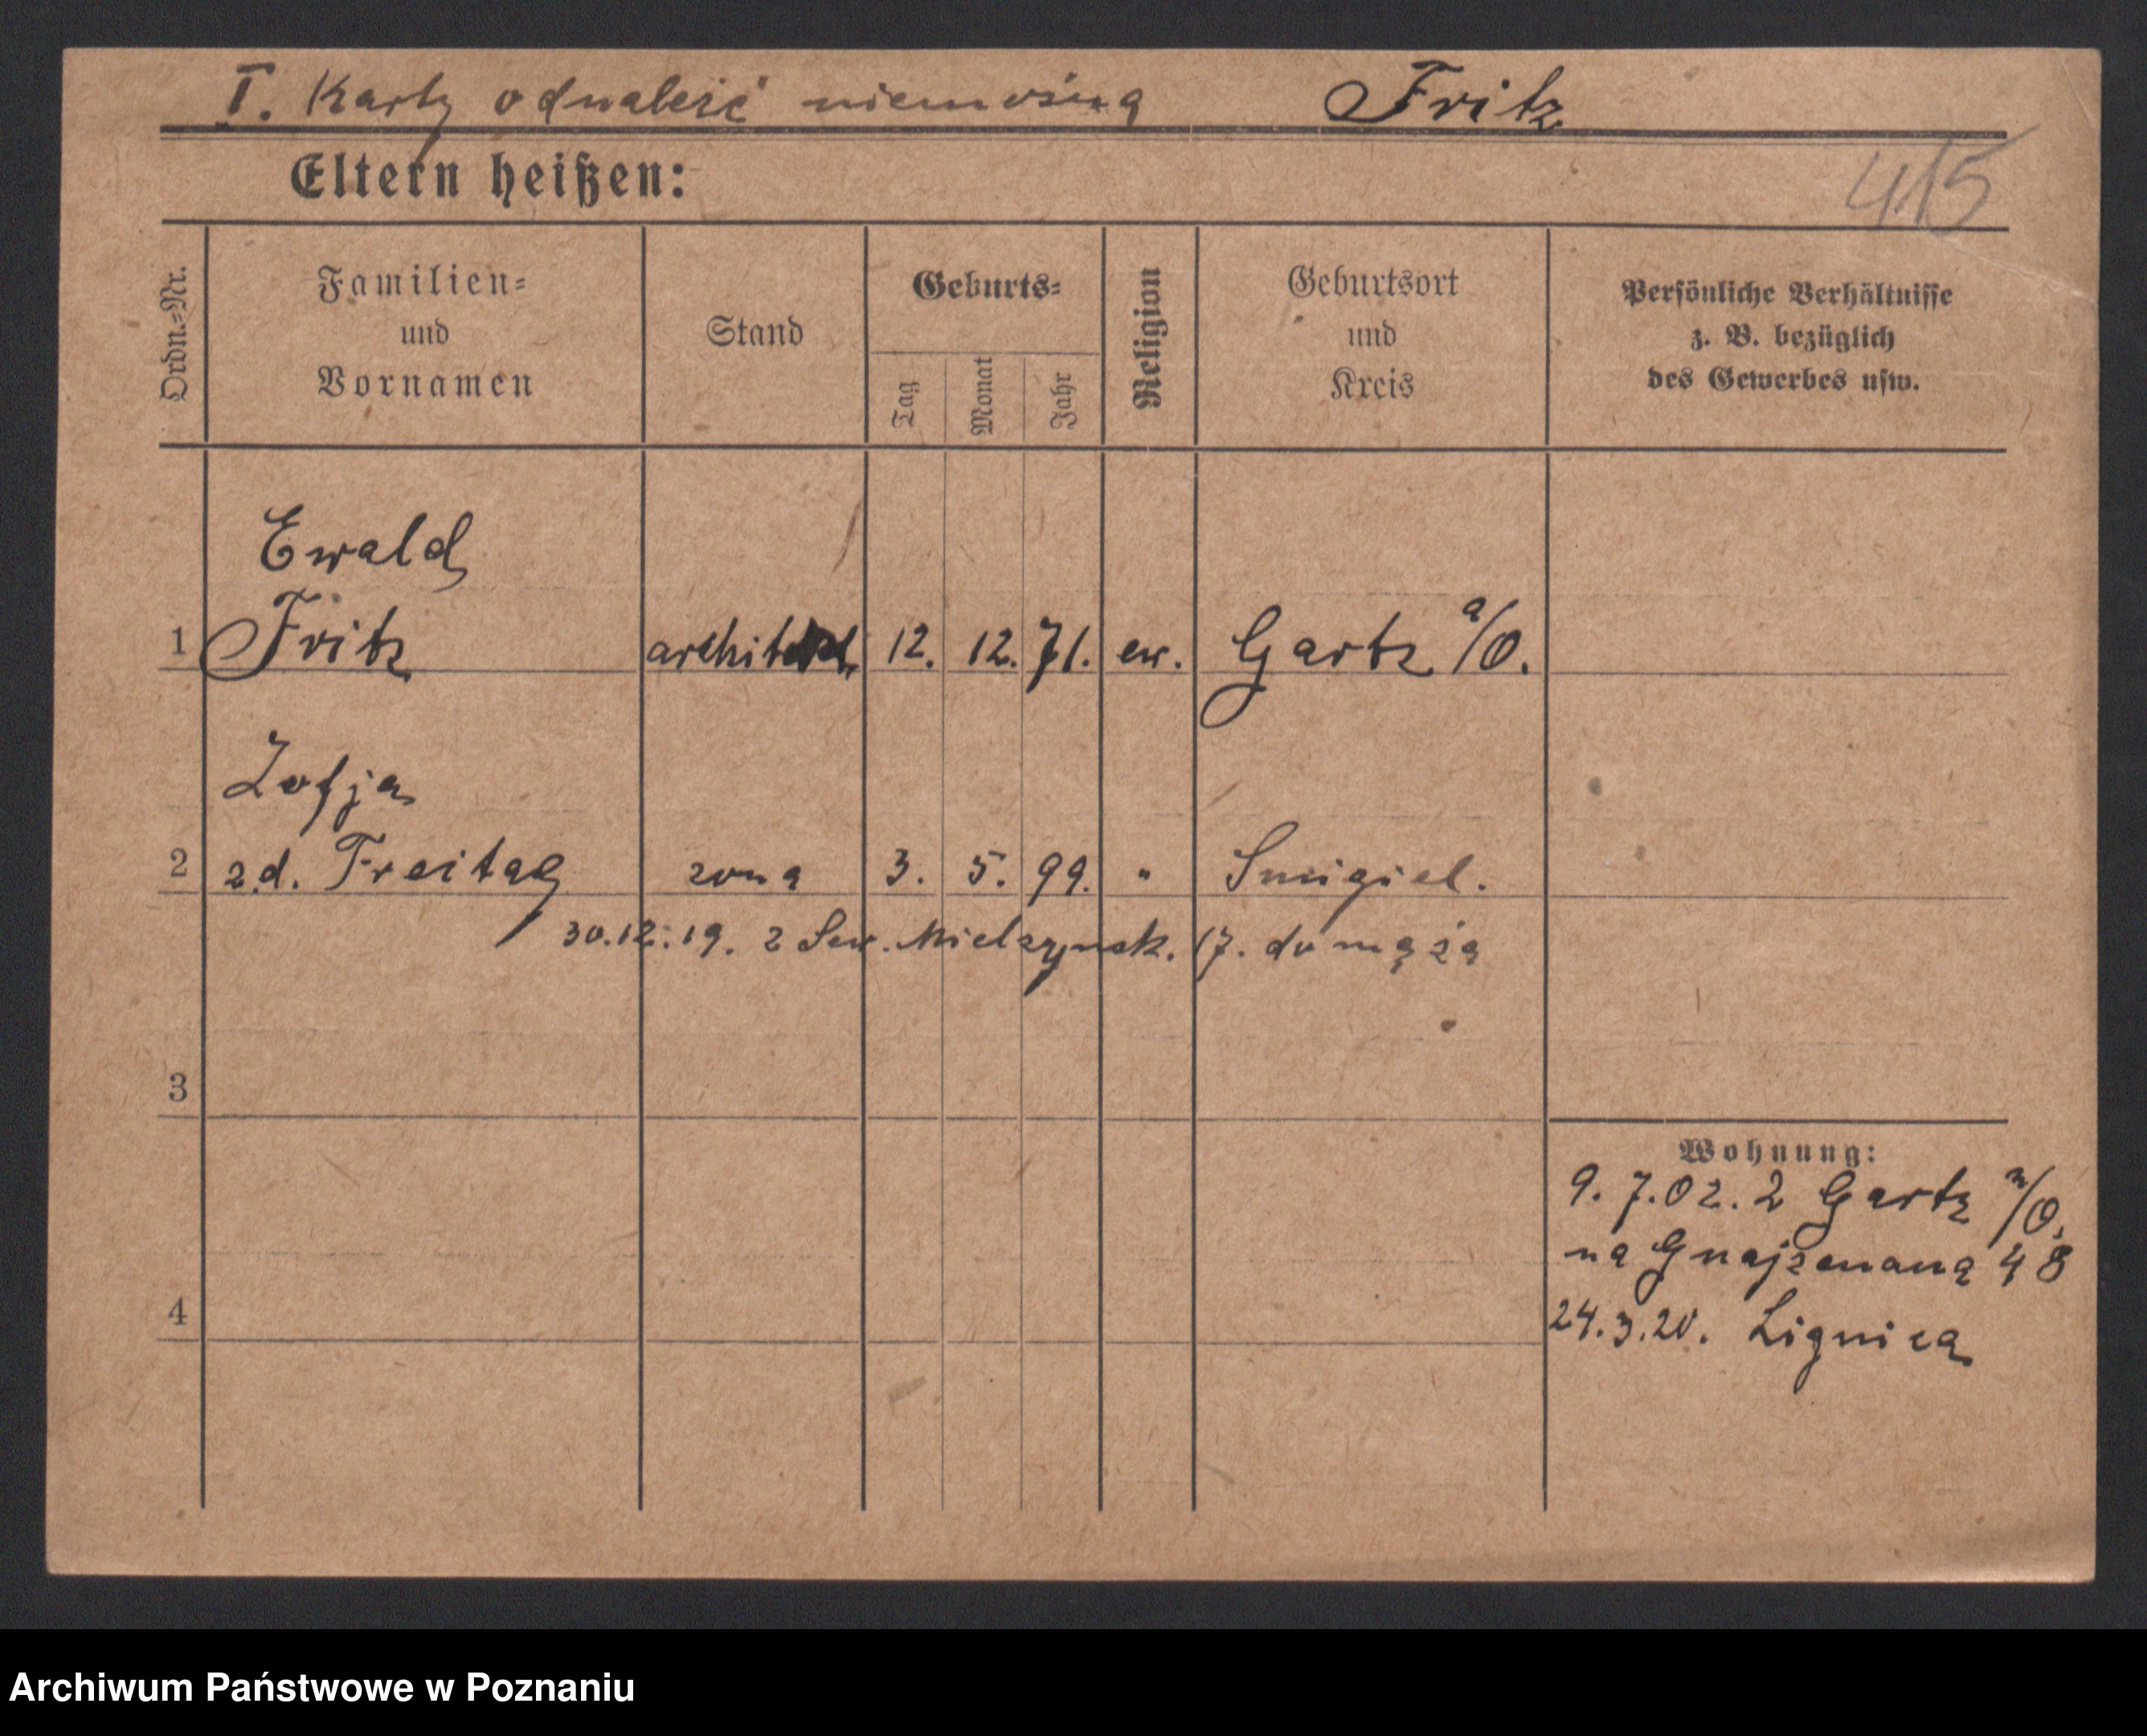 I. Karty odnaleźć niemożna Fritz
Eltern heißen:
415
Ordn.=Nr.
Familien=
und
Vornamen
Stand
Geburts=
Tag
Monat
Jahr
Religion
Geburtsort
und
Kreis
Persönliche Verhältnisse
z. B. bezüglich
des Gewerbes usw.
Ewald
1 Fritz architekt. 12. 12. 71. ew. Gartz a/O.
Zofja
2 z.d. Freitag żona 3. 5. 99. " Smigiel.
30.12.19. z Sew. Mielzynsk. 17. do męża
3
Wohnung:
9. 7. 02. z Gartz a/O.
na Gnajzenaua 48
4
24.3.20. Lignica
Archiwum Państwowe w Poznaniu